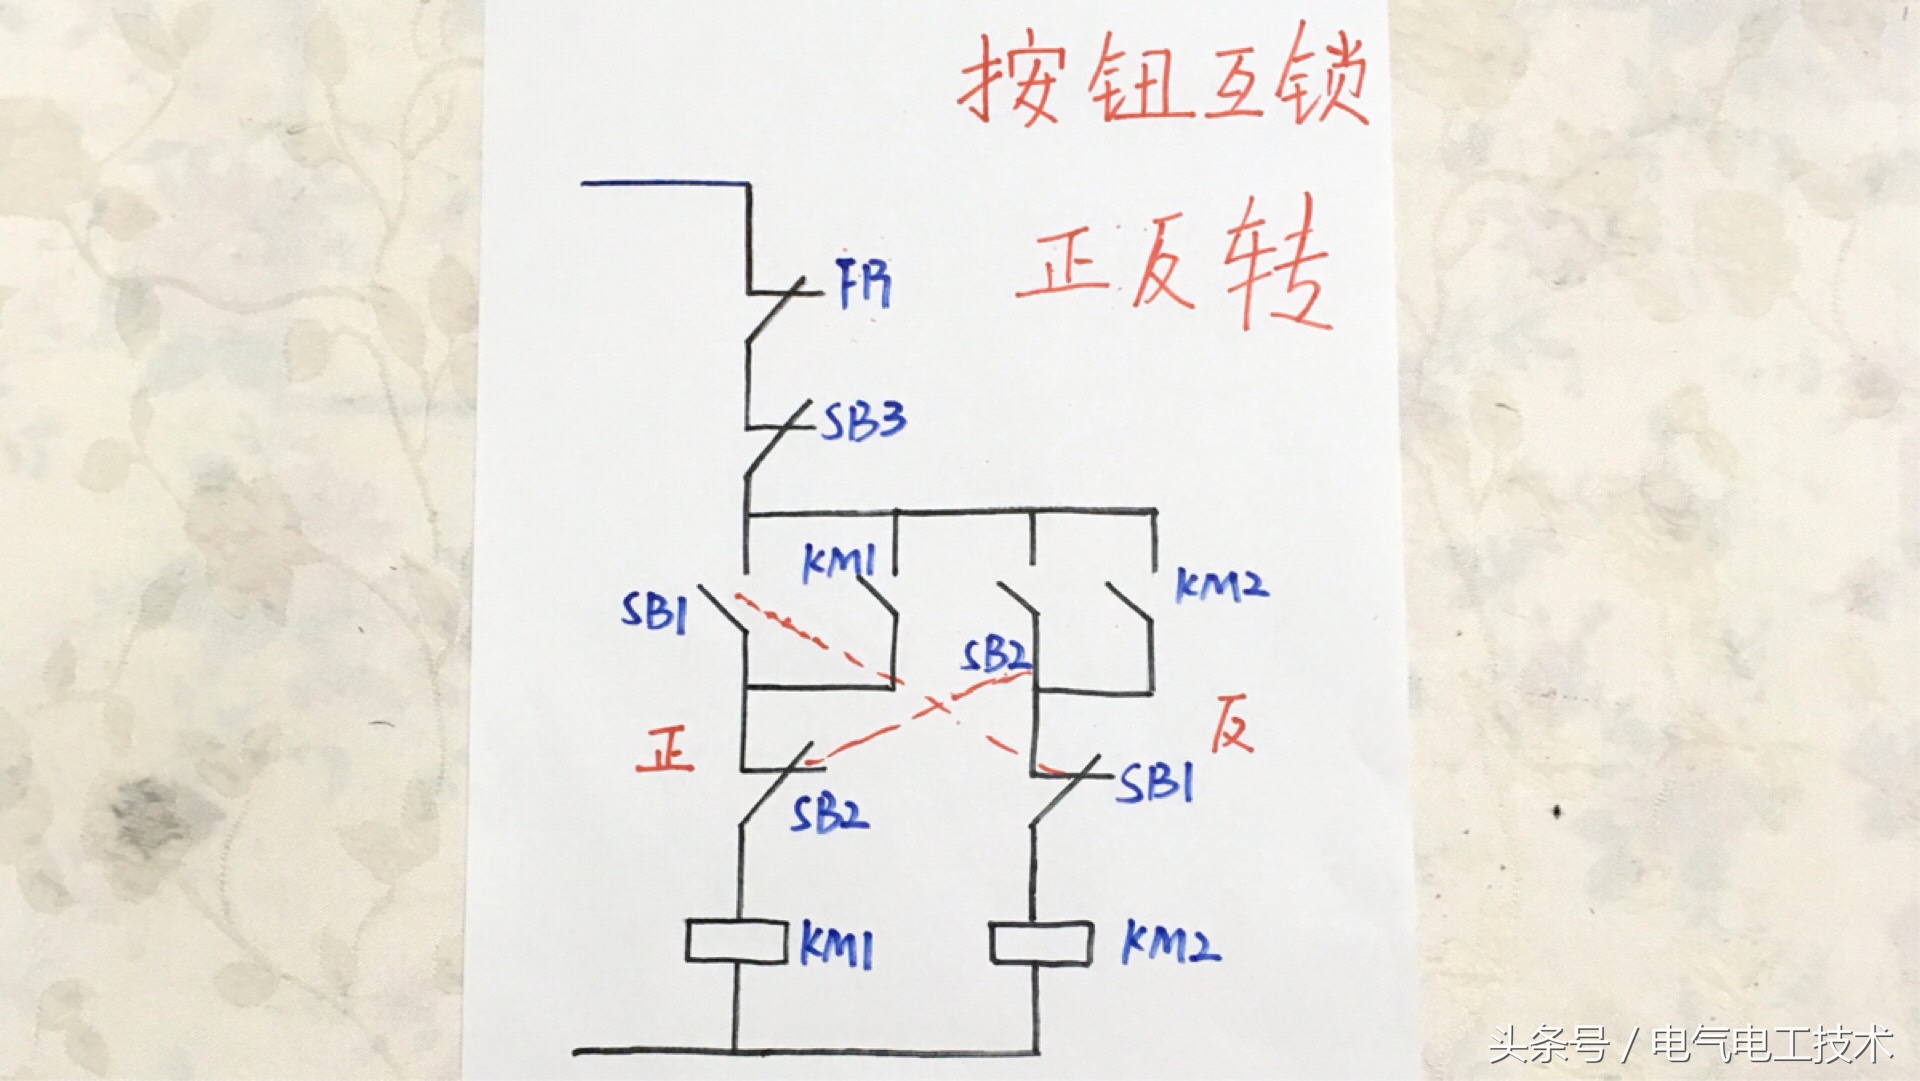 按钮互锁
正反转
FR
SB3
KM1
SB1
KM2
SB2
正
反
SB2
SB1
KM1
KM2
头条号 / 电气电工技术